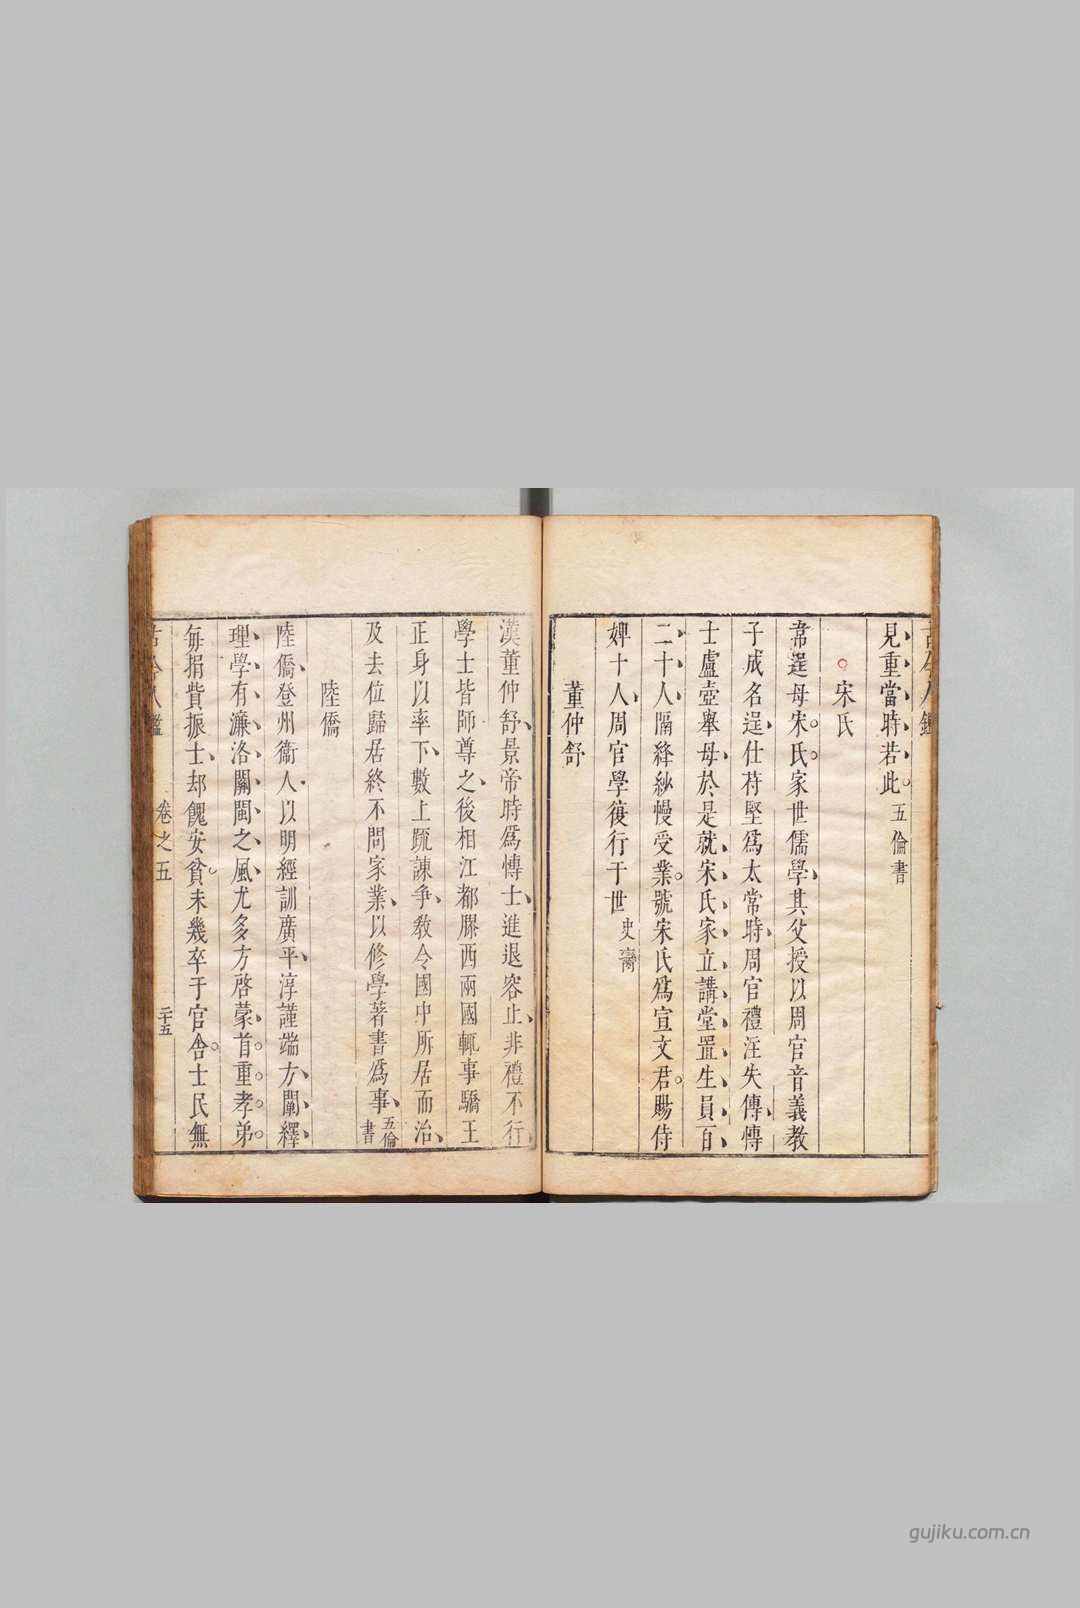 見重當時若此五倫書
宋氏
韋逞母宋氏家世儒學其父授以周官音義教
子成名逞仕苻堅爲太常時周官禮注失傳博
士盧壺舉母於是就宋氏家立講堂置生員百
二十人隔絳紗幔受業號宋氏爲宣文君賜侍
婢十人周官學復行于世史齋
董仲舒
漢董仲舒景帝時爲博士進退容止非禮不行
學士皆師尊之後相江都膠西兩國輒事驕王
正身以率下數上疏諫爭敎令國中所居而治
及去位歸居終不問家業以修學著書爲事五倫
書
陸僑
陸僑登州衞人以明經訓廣平淳謹端方闡繹
理學有濂洛關閩之風尤多方啓蒙首重孝弟
每捐貲振士却餽安貧未幾卒于官舍士民無
古今人鑑 卷之五 二十五
gujiku.com.cn